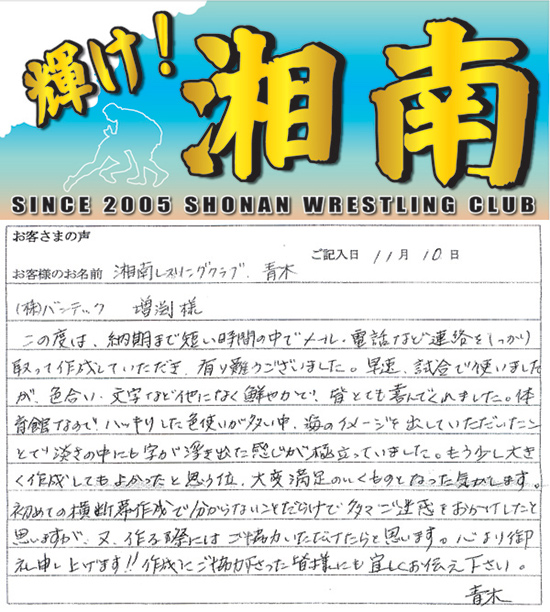 輝け!
湘南
SINCE 2005 SHONAN WRESTLING CLUB
お客さまの声
ご記入日 11月 10日
お客様のお名前 湘南レスリングクラブ、青木
(株)バンテック 増渕 様
この度は、納期まで短い時間の中でメール・電話など連絡をしっかり
取って作成していただき、有り難うございました。早速、試合で使いました
が、色合い・文字など他になく鮮やかで、皆とても喜んでくれました。体
育館なので、ハッキリした色使いが多い中、海のイメージを出していただいたこ
とで淡さの中にも字が浮き出た感じが極立っていました。もう少し大き
く作成してもよかったと思う位、大変満足のいくものとなった気がします。
初めての横断幕作成で分からないことだらけで多々ご迷惑をおかけしたと
思いますが、又、作る際にはご協力いただけたらと思います。心より御
礼申し上げます!!作成にご協力下さった皆様にも宜しくお伝え下さい。
青木